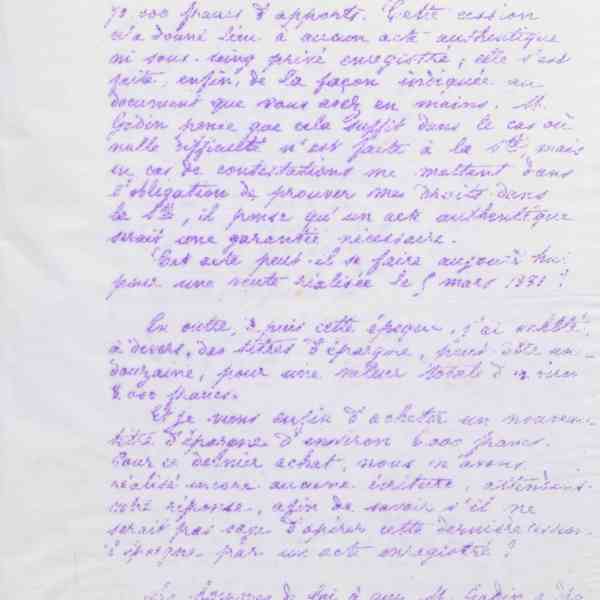 000 francs d'apports. Cette cession
n'a donné lieu à aucun acte authentique
ni sous-seing privé enregistré; elle s'est
faite, enfin, de la façon indiquée au
document que vous avez en mains. M.
Godin pense que cela suffit dans le cas où
nulle difficulté n'est faite à la Sté, mais
en cas de contestations me mettant dans
l'obligation de prouver mes droits dans
la Sté, il pense qu'un acte authentique
serait une garantie nécessaire.
Cet acte peut-il se faire aujourd'hui
pour une vente réalisée le 5 mars
En outre, depuis cette époque, j'ai acheté,
à divers, des titres d'épargne,
douzaine, pour une valeur totale d'
8.000 francs.
Et je viens enfin d'acheter un nouveau
titre d'épargne d'environ 6.000 francs.
Pour ce dernier achat, nous n'avons
réalisé encore aucune écriture, attendant
votre réponse, afin de savoir s'il ne
serait pas sage d'opérer cette dernière cession
d'épargne par un acte enregistré?
M. Godin